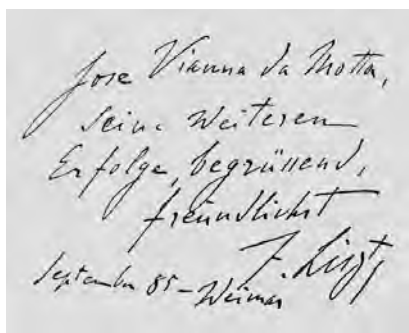 Jose Vianna da Motta,
seine Weiteren
Erfolge, begrüssend,
freundlichst
F. Liszt
September 85 – Weimar